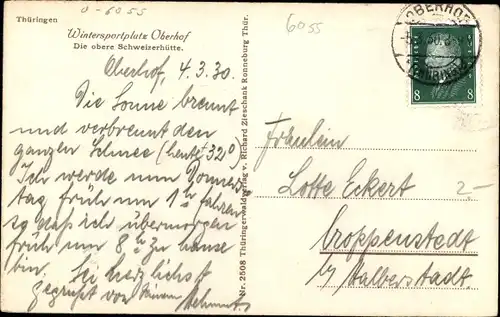 Thüringen
0-6055
6055
Wintersportplatz Oberhof
Die obere Schweizerhütte.
OBERHOF
(THÜRINGEN)
8 8
Oberhof, 4.3.30.
Die Sonne brennt
und verbrennt den
ganzen Schnee (heute +32°)
Ich werde nun Donners-
tag früh um 1 h fahren
so daß ich übermorgen
früh um 8 h zu Hause
bin. Sei herzlichst
gegrüßt von Deinem Helmut
Nr. 2508 Thüringerwaldverlag v. Richard Zieschank Ronneburg Thür.
Fräulein
Lotte Eckert
2-
Croppenstedt
b/ Halberstadt.